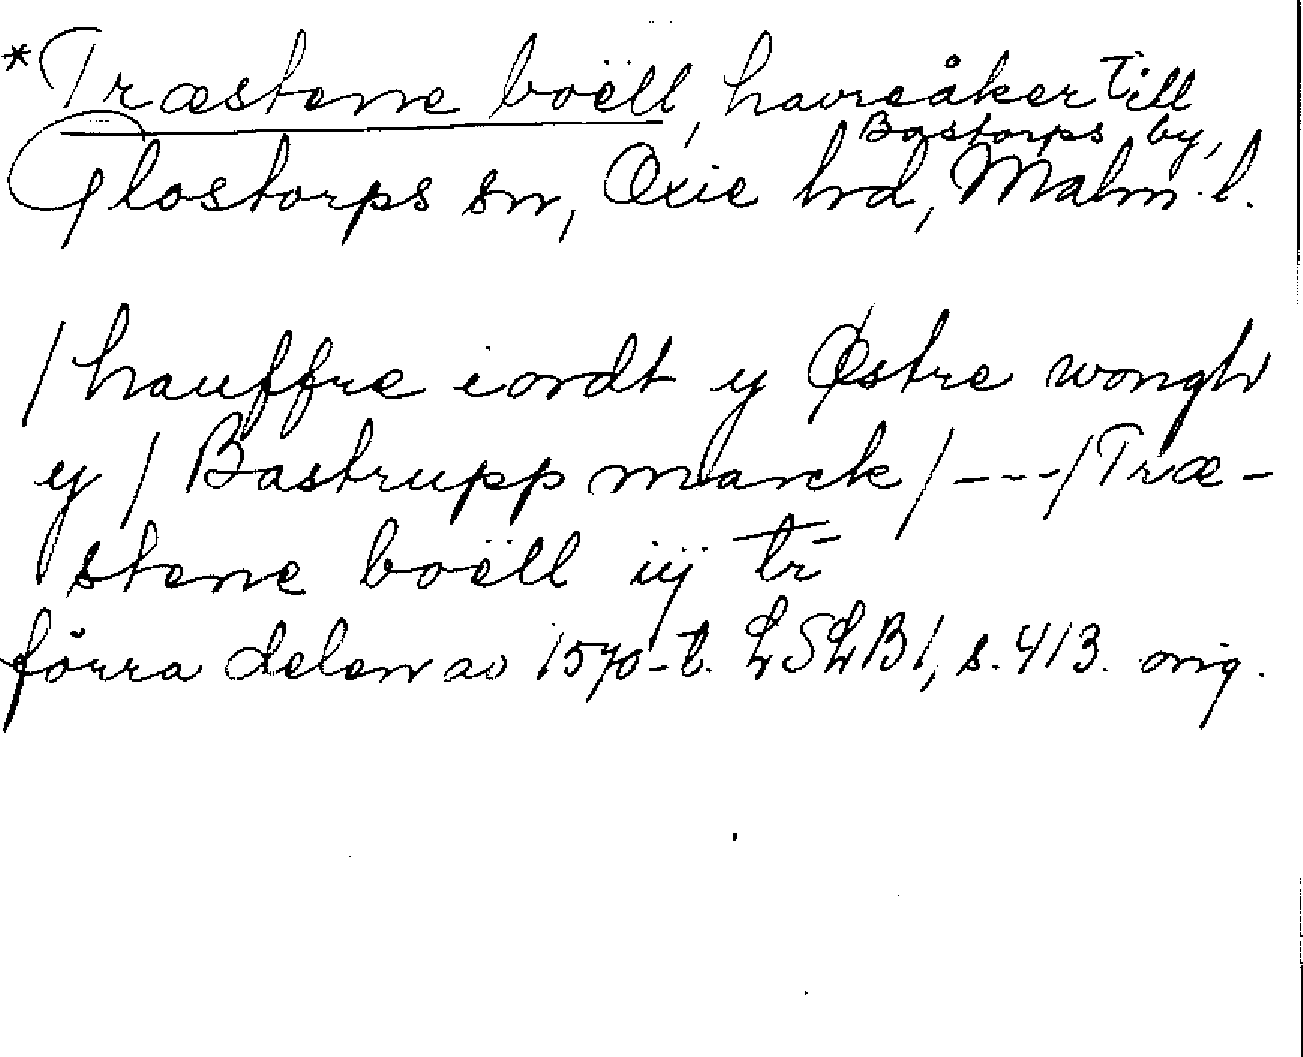 *Træstene boëll, havreåker till
Bastorps by,
Glostorps sn, Oxie hd, Malm. l.
/ hauffre iordt y Østre wongh
y / Bastrupp marck / --- / Træ-
stene boëll iij tr̄
förra delen av 1570-t. LSLB1, s. 413. orig.